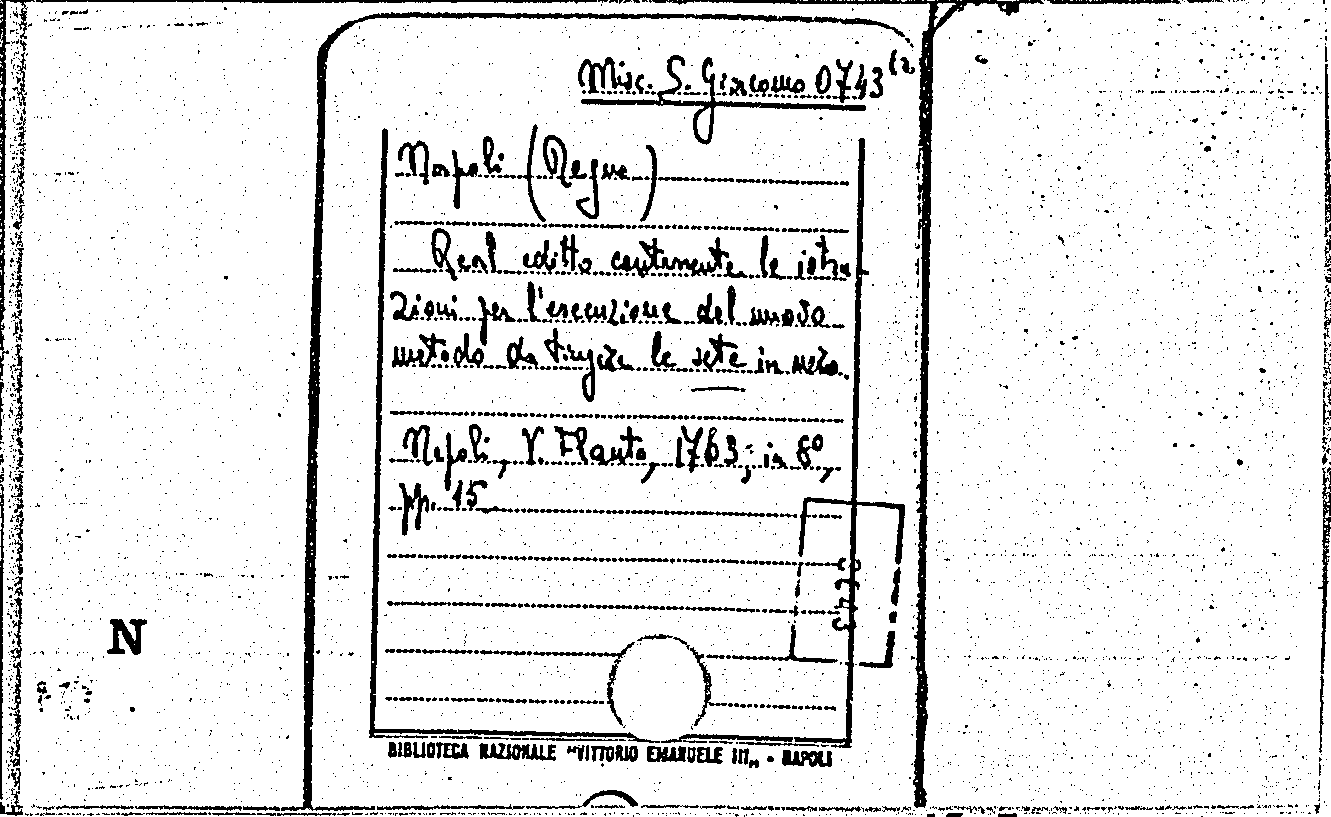 Misc. S. Giacomo 0743 (2
Napoli (Regno)
Real editto contenente le istru-
zioni per l'esecuzione del nuovo
metodo da tirare le sete in
Napoli, V. Flauto, 1763; in 8º,
pp. 15
0743
N
BIBLIOTECA NAZIONALE "VITTORIO EMANUELE III„ - NAPOLI